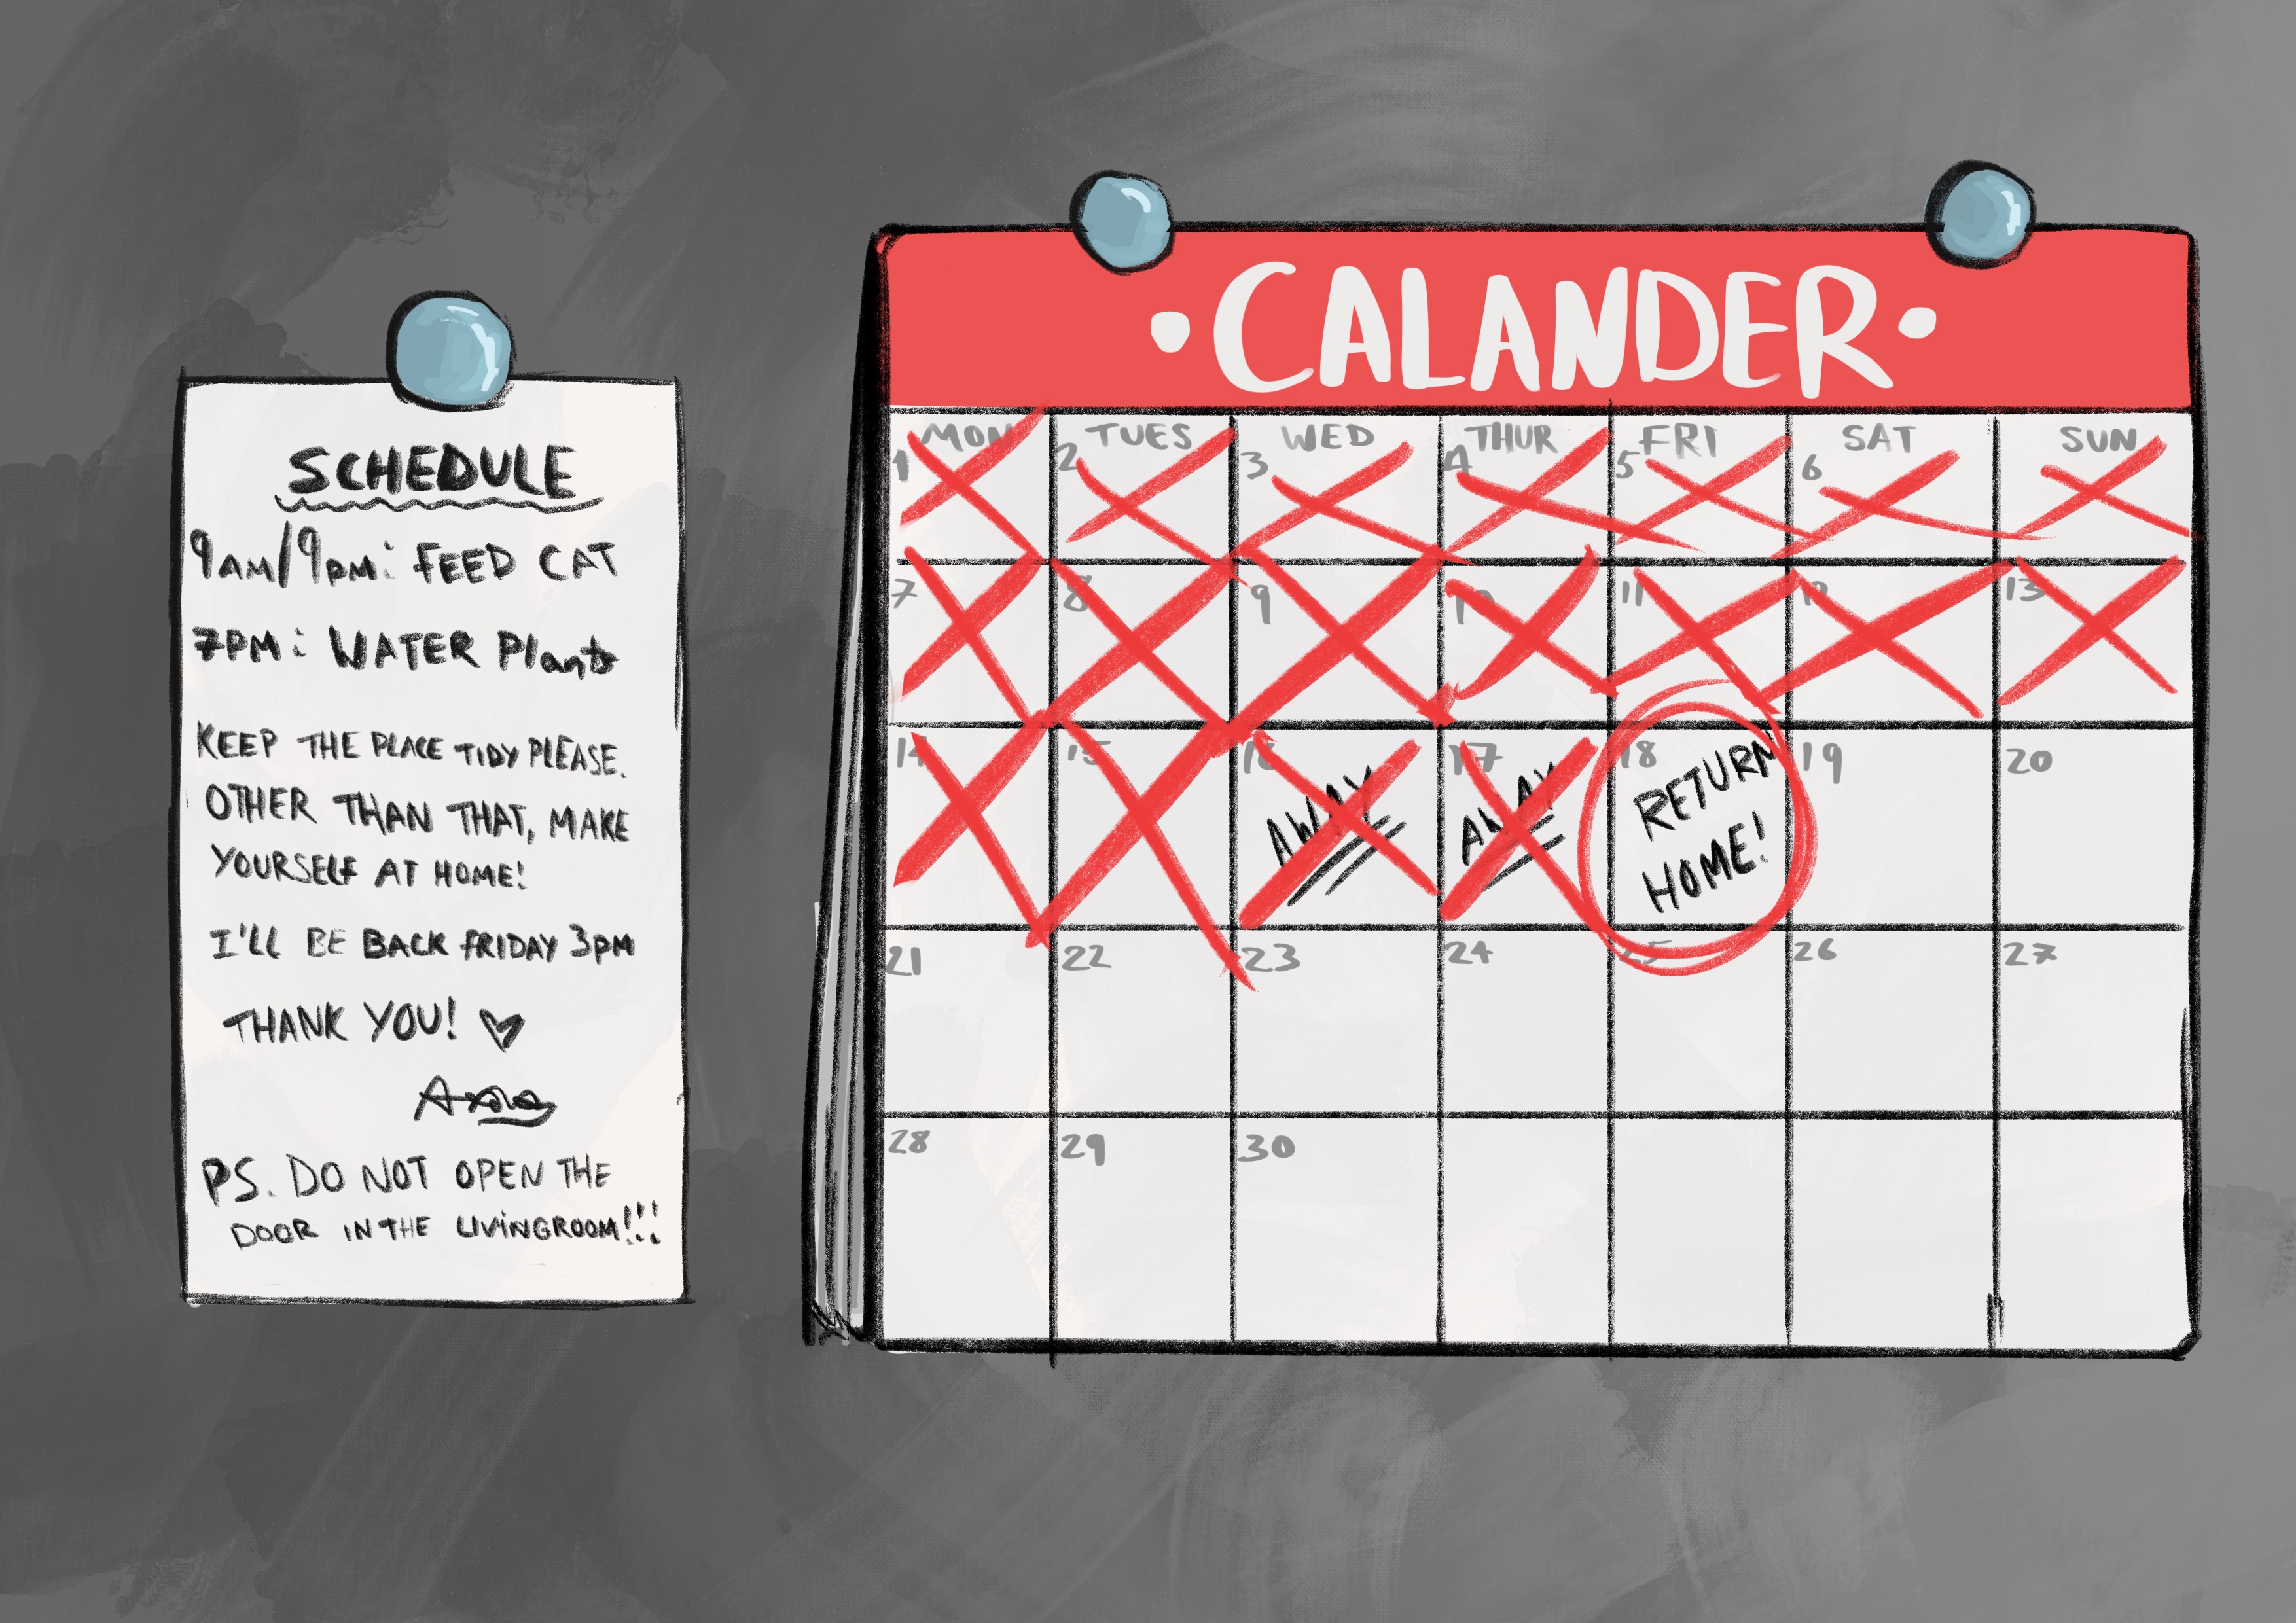 SCHEDULE
9AM/9PM: FEED CAT
7PM: WATER Plants
KEEP THE PLACE TIDY PLEASE.
OTHER THAN THAT, MAKE
YOURSELF AT HOME!
I'LL BE BACK FRIDAY 3PM
THANK YOU! ♡
PS. DO NOT OPEN THE
DOOR IN THE LIVINGROOM!!!
•CALANDER•
MON TUES WED THUR FRI SAT SUN
1 2 3 4 5 6
7 8 9 10 11 12 13
14 15 16 17 18 19 20
AWAY AWAY RETURN
HOME!
21 22 23 24 25 26 27
28 29 30